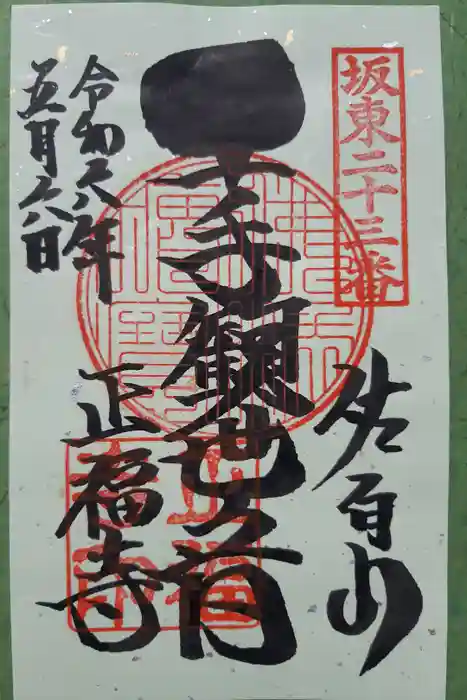 坂東二十三番
佐白山
千手観世音
正福寺
正福寺印
令和六年
五月六日